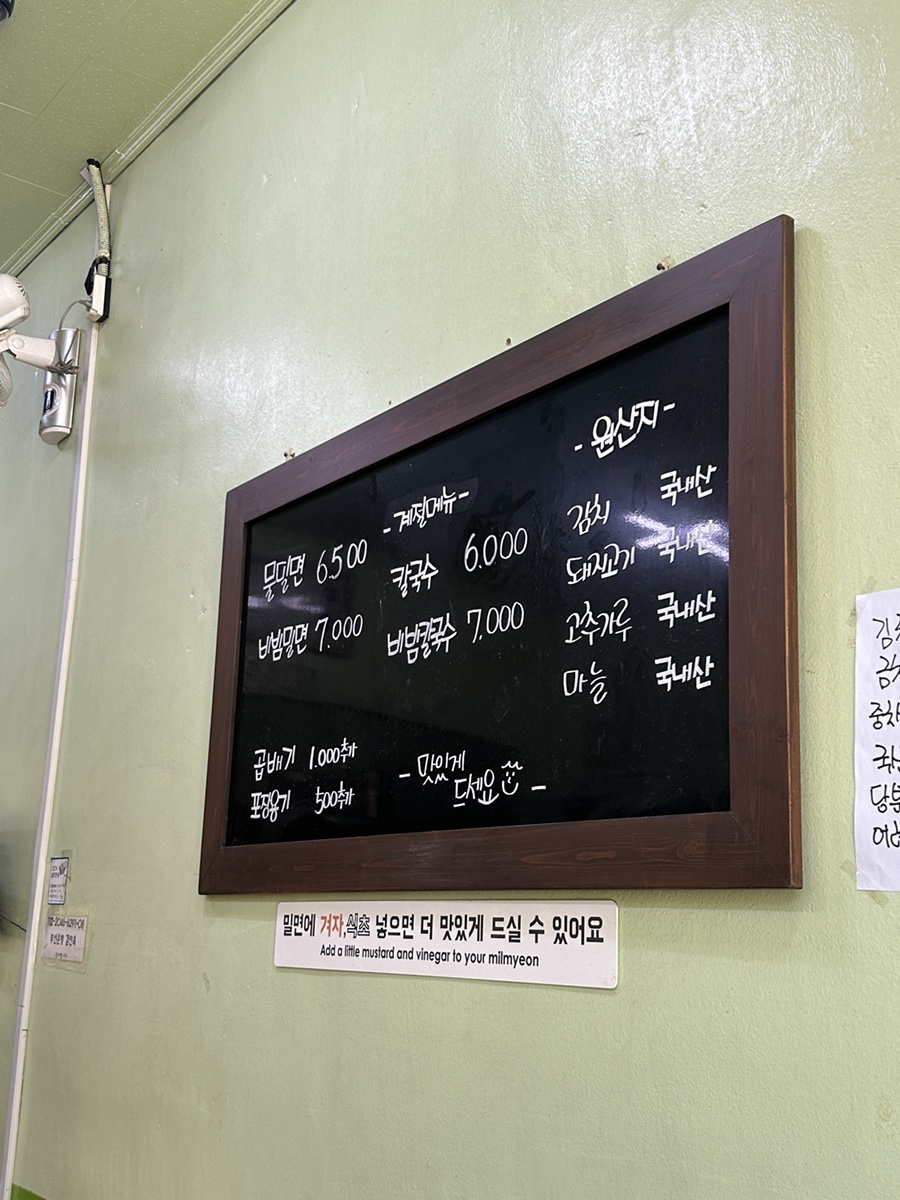 물밀면 6.500
비빔밀면 7.000
곱배기 1.000추가
포장용기 500추가
-계절메뉴-
칼국수 6.000
비빔칼국수 7.000
- 맛있게
드세요 -
-원산지-
김치 국내산
돼지고기 국내산
고추가루 국내산
마늘 국내산
밀면에 겨자,식초 넣으면 더 맛있게 드실 수 있어요
Add a little mustard and vinegar to your milmyeon